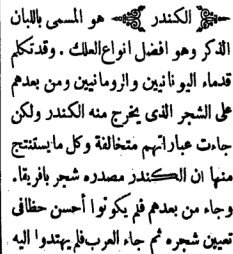 الكندر هو المسمى باللبان
الذكر وهو افضل انواع العلك . وقد تكلم
قدماء اليونانيين والرومانيين ومن بعدهم
على الشجر الذى يخرج منه الكندر ولكن
جاءت عباراتهم متخالفة وكل ما يستنتج
منها ان الكندر مصدره شجر بافريقا .
وجاء من بعدهم فلم يكونوا أحسن حظا فى
تعيين شجره ثم جاء العرب فلم يهتدوا اليه